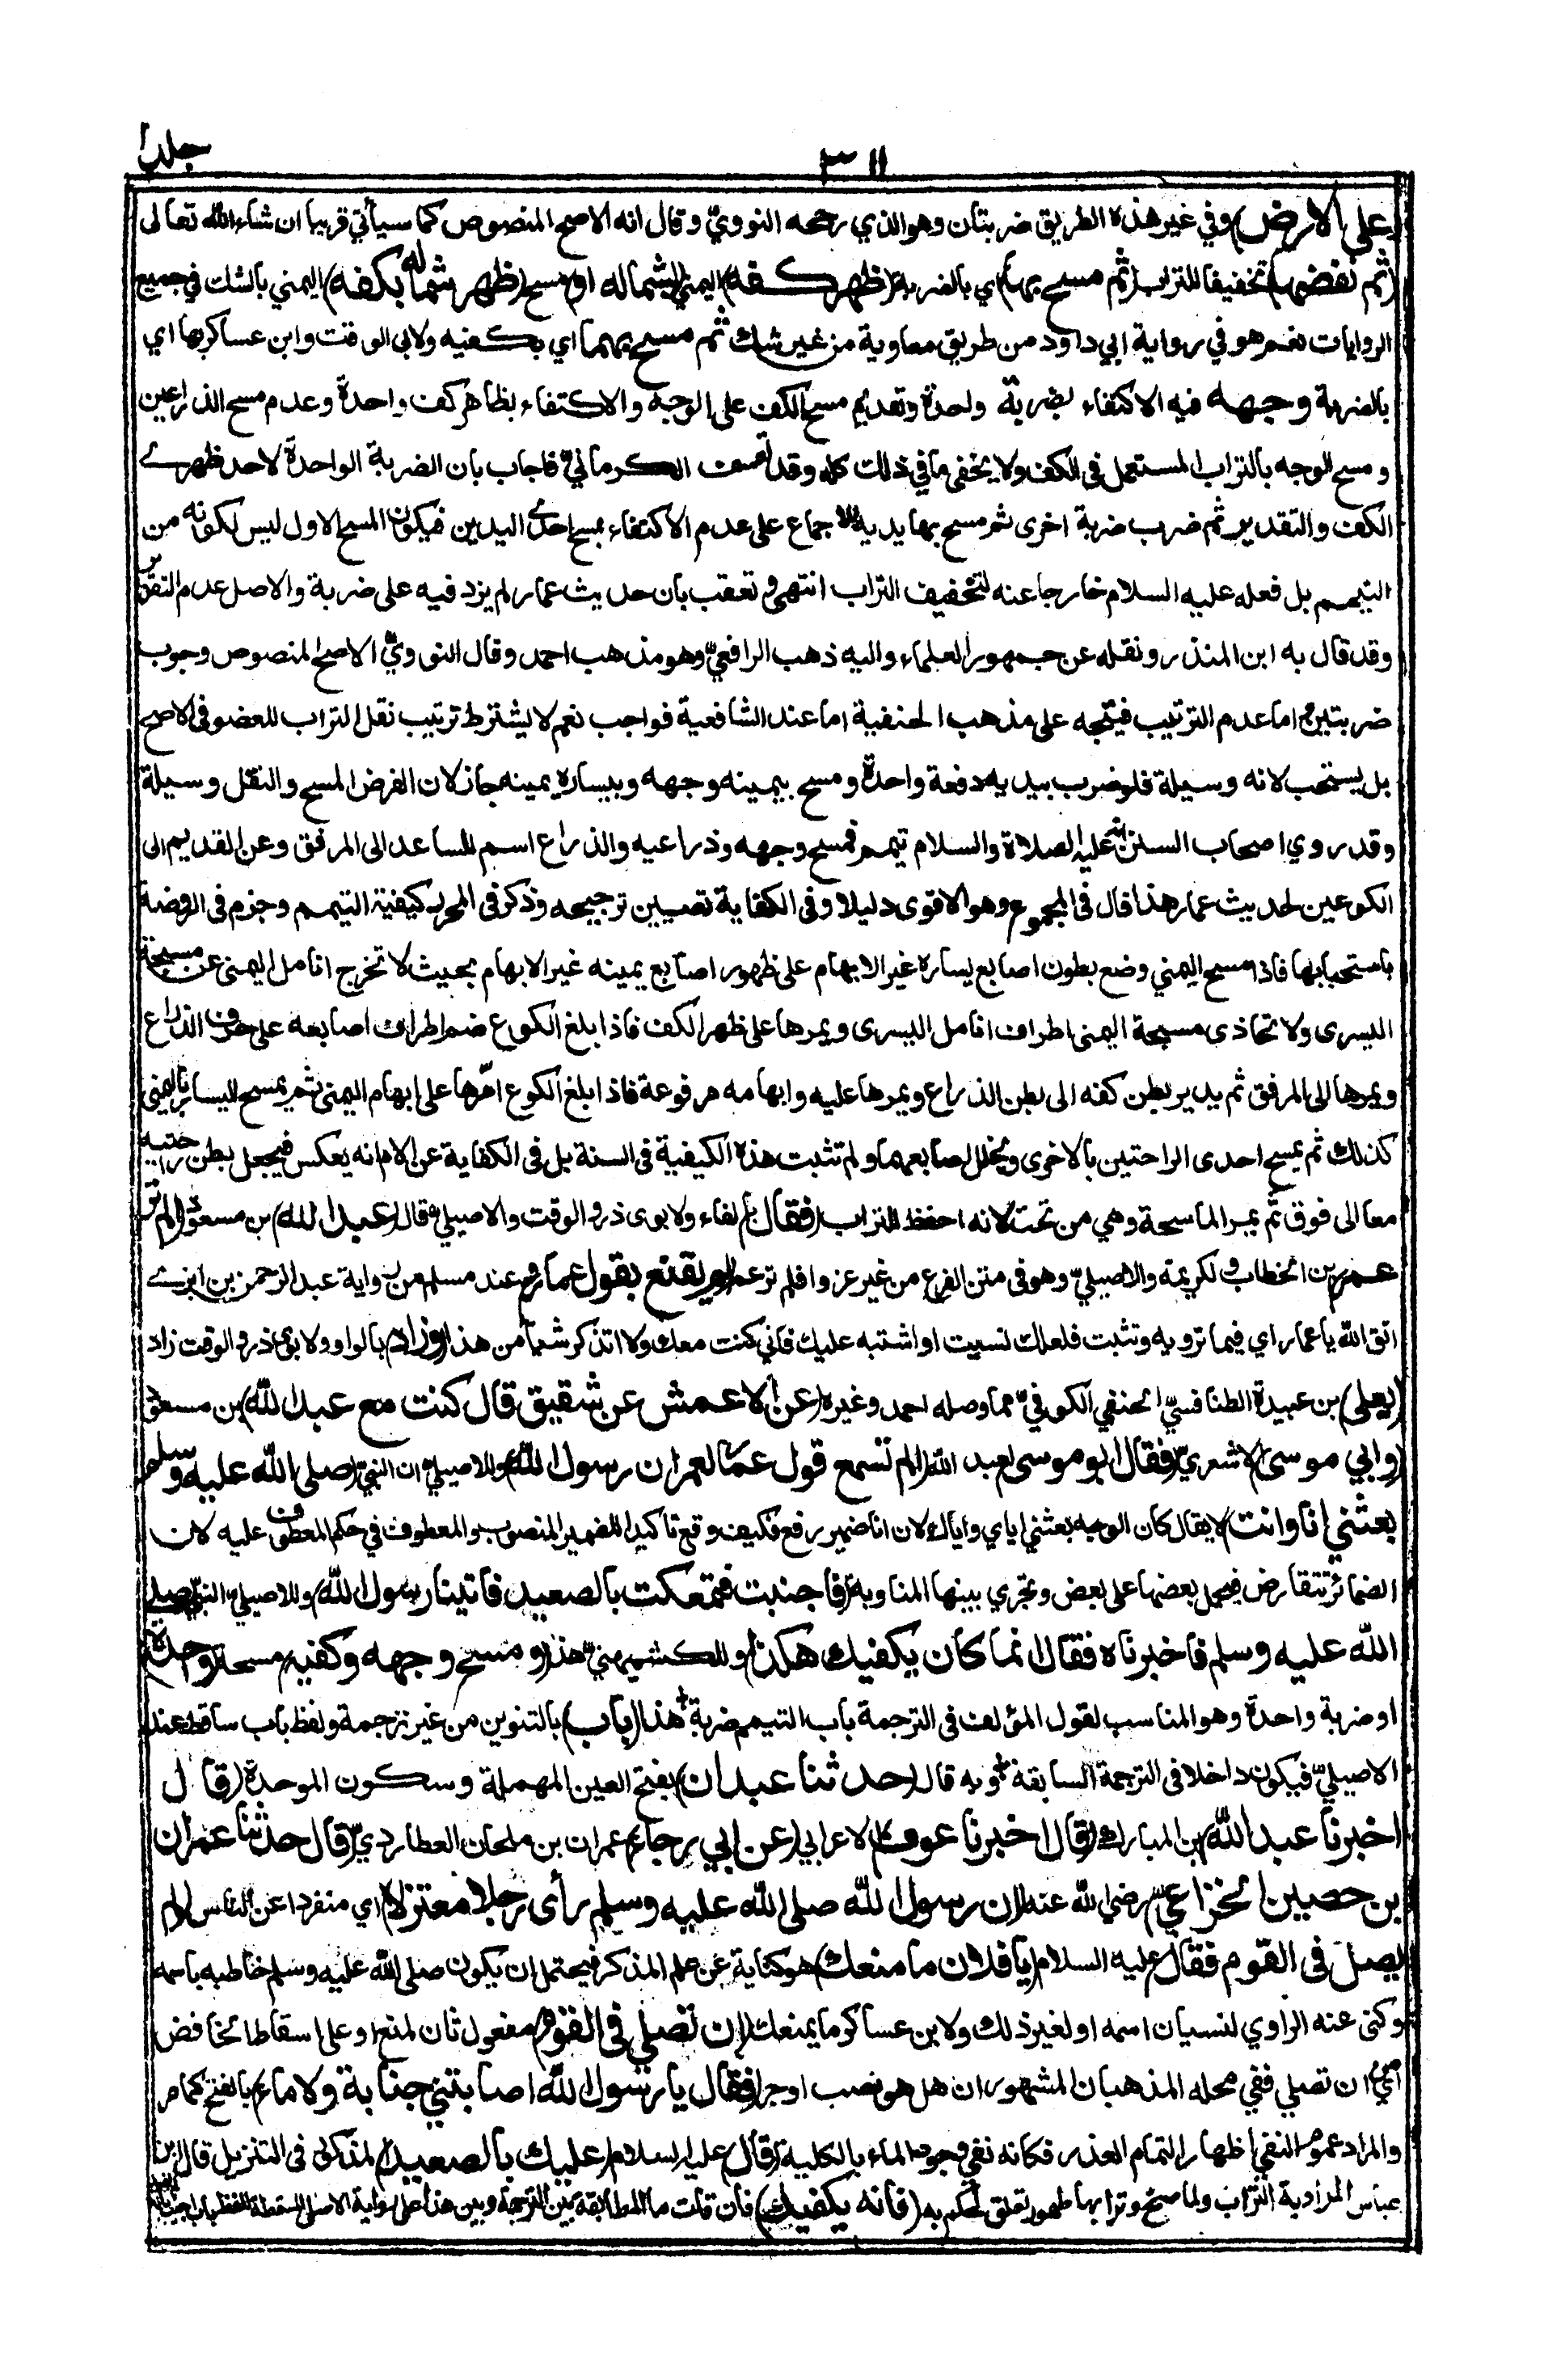 ٣١١
جلد ١
(على الارض) وفي غير هذه الطريق ضربتان وهو الذي رجحه النووي وقال انه الاصح المنصوص كما سيأتي قريبا ان شاء الله تعالى
(ثم نفضها) تخفيفا للتراب (ثم مسح بها) اي بالضربة (ظهر كفه) اليمنى (بشماله او) مسح (ظهر شماله بكفه) اليمنى بالشك في جميع
الروايات نعم هو في رواية ابي داود من طريق معاوية من غير شك ثم مسح بهما اي بكفيه ولابي الوقت وابن عساكر بها اي
بالضربة وجهه فيه الاكتفاء بضربة واحدة وتقديم مسح الكف على الوجه والاكتفاء بظاهر كف واحدة وعدم مسح الذراعين
ومسح الوجه بالتراب المستعمل في الكف ولا يخفى ما في ذلك كله وقد تعسف الكرماني فاجاب بان الضربة الواحدة لاحد ظهري
الكف والتقدير ثم ضرب ضربة اخرى ثم مسح بها يديه للاجماع على عدم الاكتفاء بمسح احدى اليدين فيكون المسح الاول ليس لكونه من
التيمم بل فعله عليه السلام خارجا عنه لتخفيف التراب انتهى وتعقب بان حديث عمار لم يزد فيه على ضربة والاصل عدم التقدير
وقد قال به ابن المنذر ونقله عن جمهور العلماء واليه ذهب الرافعي وهو مذهب احمد وقال النووي الاصح المنصوص وجوب
ضربتين اما عدم الترتيب فيتجه على مذهب الحنفية اما عند الشافعية فواجب نعم لا يشترط ترتيب نقل التراب للعضو في الاصح
بل يستحب لانه وسيلة فلو ضرب بيديه دفعة واحدة ومسح بيمينه وجهه وبيساره يمينه جاز لان الفرض المسح والنقل وسيلة
وقد روي اصحاب السنن انه عليه الصلاة والسلام تيمم فمسح وجهه وذراعيه والذراع اسم للساعد الى المرفق وعن القديم الى
الكوعين لحديث عمار هذا قال في المجموع وهو الاقوى دليلا وفي الكفاية تعيين ترجيحه وذكر في المحرر كيفية التيمم وجزم في الروضة
باستحبابها فاذا مسح اليمنى وضع بطون اصابع يساره غير الابهام على ظهور اصابع يمينه غير الابهام بحيث لا تخرج انامل اليمنى عن مسبحة
اليسرى ولا تحاذى مسبحة اليمنى اطراف انامل اليسرى ويمرها على ظهر الكف فاذا بلغ الكوع ضم اطراف اصابعه على حرف الذراع
ويمرها الى المرفق ثم يدير بطن كفه الى بطن الذراع ويمرها عليه وابهامه مرفوعة فاذا بلغ الكوع امرها على ابهام اليمنى ثم يمسح اليسار باليمنى
كذلك ثم يمسح احدى الراحتين بالاخرى ويخلل اصابعهما ولم تثبت هذه الكيفية في السنة بل في الكفاية عن الام انه يعكس فيجعل بطن راحتيه
معا الى فوق ثم يمر الماسحة وهي من تحت لانه احفظ للتراب (فقال) بالفاء ولابوى ذر والوقت والاصيلي قال (عبد الله) بن مسعود (الم تر
عمر) بن الخطاب ولكريمة والاصيلي وهو في متن الفرع من غير عزو افلم تر عمر (لم يقنع بقول عمار) وعند مسلم من رواية عبد الرحمن بن ابزى
اتق الله يا عمار اي فيما ترويه وتثبت فلعلك نسيت او اشتبه عليك فاني كنت معك ولا اتذكر شيأ من هذا (وزاد) بالواو ولابوى ذر والوقت زاد
(يعلى) بن عبيدة الطنافسي الحنفي الكوفي مما وصله احمد وغيره (عن الاعمش عن شقيق قال كنت مع عبد الله) بن مسعود
(وابي موسى) الاشعري (فقال ابو موسى) لعبد الله (الم تسمع قول عمار لعمر ان رسول الله) وللاصيلي ان النبي (صلى الله عليه وسلم
بعثني انا وانت) لا يقال كان الوجه بعثني اياي واياك لان انا ضمير رفع فكيف وقع تاكيدا للضمير المنصوب والمعطوف في حكم المعطوف عليه لان
الضمائر تتقارض فيحمل بعضها على بعض وتجري بينها المناوبة (فاجنبت فتمعكت بالصعيد فاتينا رسول الله) وللاصيلي النبي (صلى
الله عليه وسلم فاخبرناه فقال انما كان يكفيك هكذا) وللكشميهني هذا (ومسح وجهه وكفيه) مسحة (واحدة)
او ضربة واحدة وهو المناسب لقول المؤلف في الترجمة باب التيمم ضربة هذا (باب) بالتنوين من غير ترجمة ولفظ باب ساقط عند
الاصيلي فيكون داخلا في الترجمة السابقة وبه قال (حدثنا عبدان) بفتح العين المهملة وسكون الموحدة (قال
اخبرنا عبد الله) بن المبارك (قال اخبرنا عوف) الاعرابي (عن ابي رجاء) عمران بن ملحان العطاردي (قال حدثنا عمران
بن حصين الخزاعي) رضي الله عنه (ان رسول الله صلى الله عليه وسلم رأى رجلا معتزلا) اي منفردا عن الناس (لم
يصل في القوم فقال) عليه السلام (يا فلان ما منعك) هو كناية عن علم المذكر فيحتمل ان يكون صلى الله عليه وسلم خاطبه باسمه
وكنى عنه الراوي لنسيان اسمه او لغير ذلك ولابن عساكر ما يمنعك (ان تصلي في القوم) مفعول ثان لمنع او على اسقاط الخافض
اي من ان تصلي ففي محله المذهبان المشهوران هل هو نصب او جر (فقال يا رسول الله اصابتني جنابة ولا ماء) بالفتح كما مر
والمراد عموم النفي اظهارا لتمام العذر فكانه نفي وجود الماء بالكلية (قال) عليه السلام (عليك بالصعيد) المذكور في التنزيل قال ابن
عباس المراد به التراب ولما صح وترابها طهور تعلق الحكم به (فانه يكفيك) فان قلت ما المطابقة بين الترجمة وبين هذا على رواية الاصيلي المسقطة للفظ باب اجيب بانه